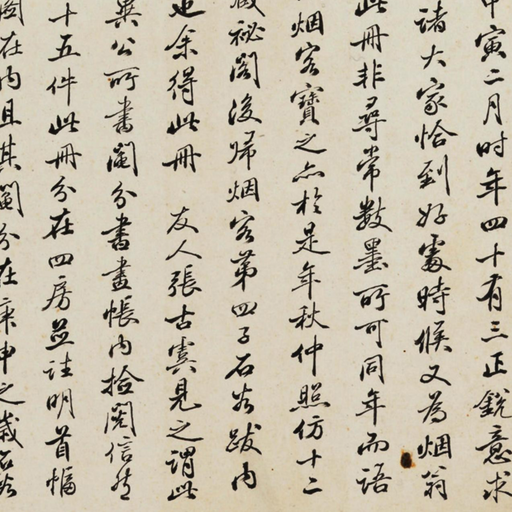 寅二月时年四十有三正銳意求
諸大家恰到好處時候又為烟翁
此冊非尋常數墨所可同年而語
烟客寶之亦於是年秋仲照仿十二
藏祕閣後歸烟客第四子石谷跋內
迆余得此冊　友人張古雲見之謂此
異公所書鬮分書畫帳內撿閱信有
十五件此冊分在四房并註明首幅
在內且其鬮分在庚申之歲石谷